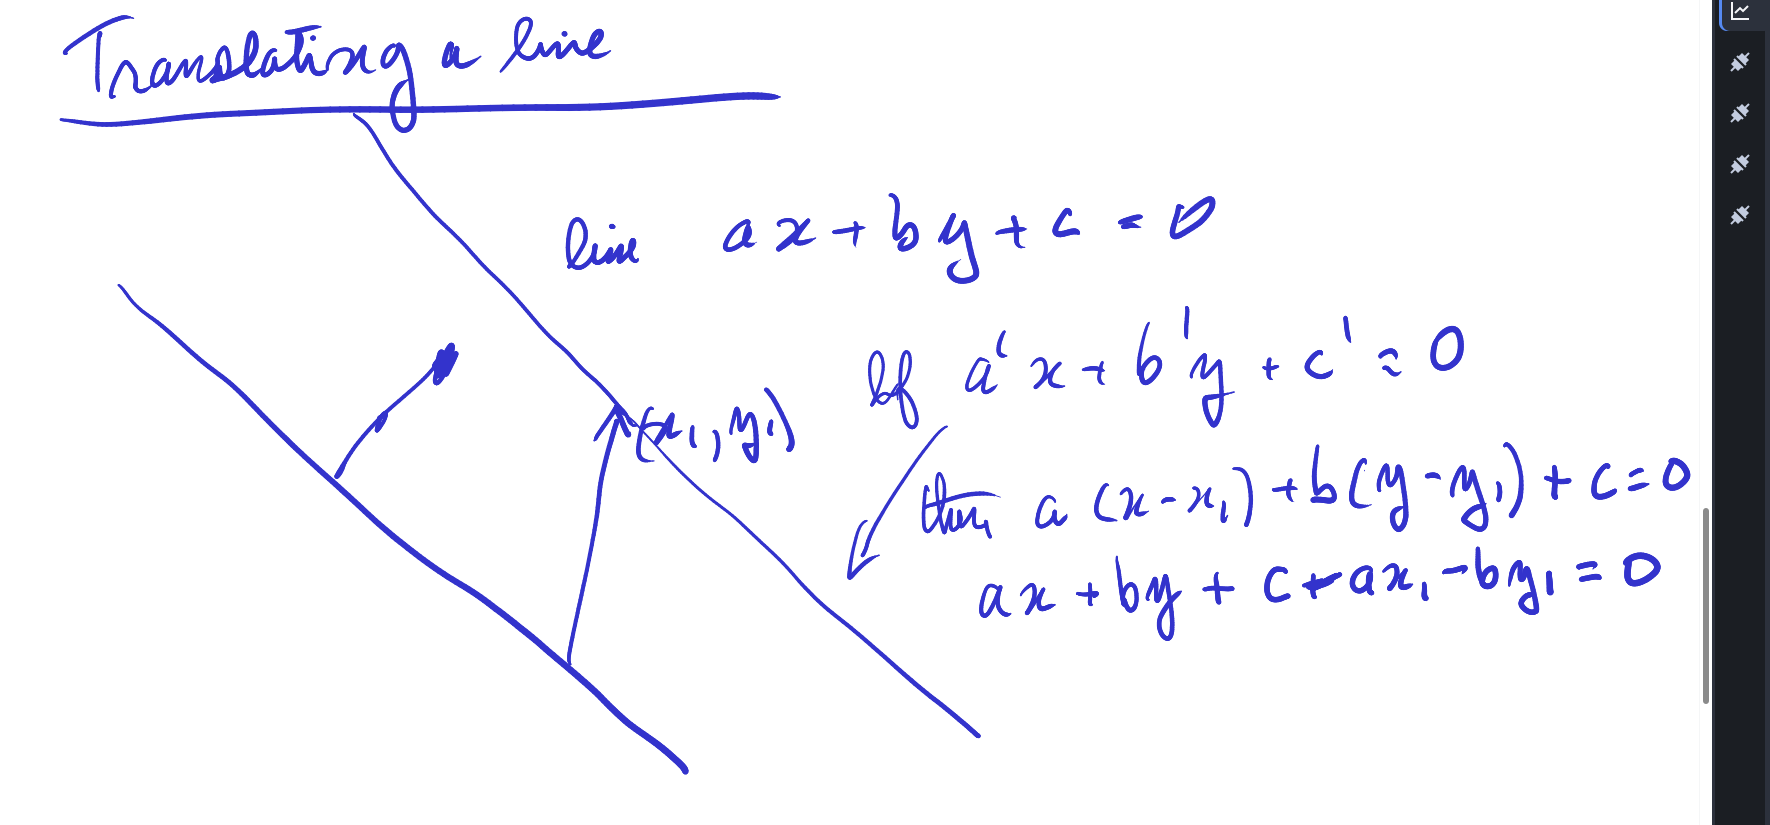 Translating a line
line ax + by + c = 0
If a'x + b'y + c' = 0
(x₁, y₁)
then a(x-x₁) + b(y-y₁) + c = 0
ax + by + c - ax₁ - by₁ = 0